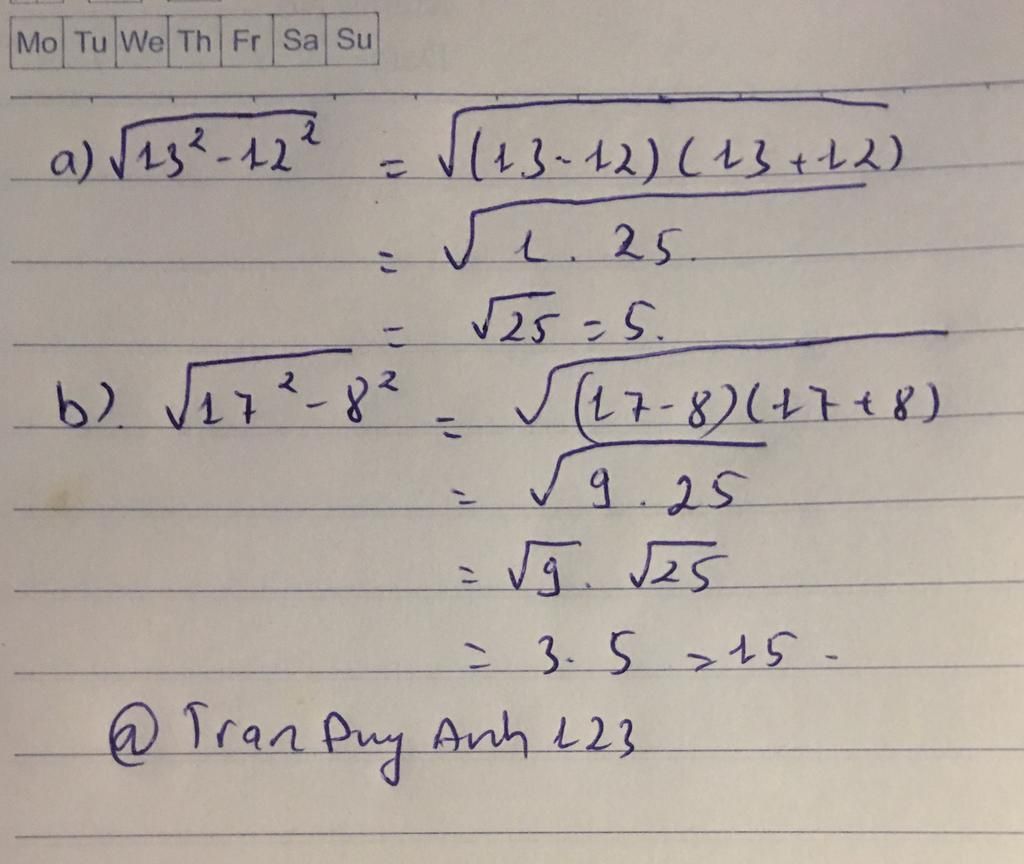 Mo Tu We Th Fr Sa Su
a) √13² - 12² = √(13-12)(13+12)
= √1 . 25.
= √25 = 5.
b). √17² - 8² = √(17-8)(17+8)
= √9 . 25
= √9 . √25
= 3. 5 = 15 -
@ Tran Duy Anh 123